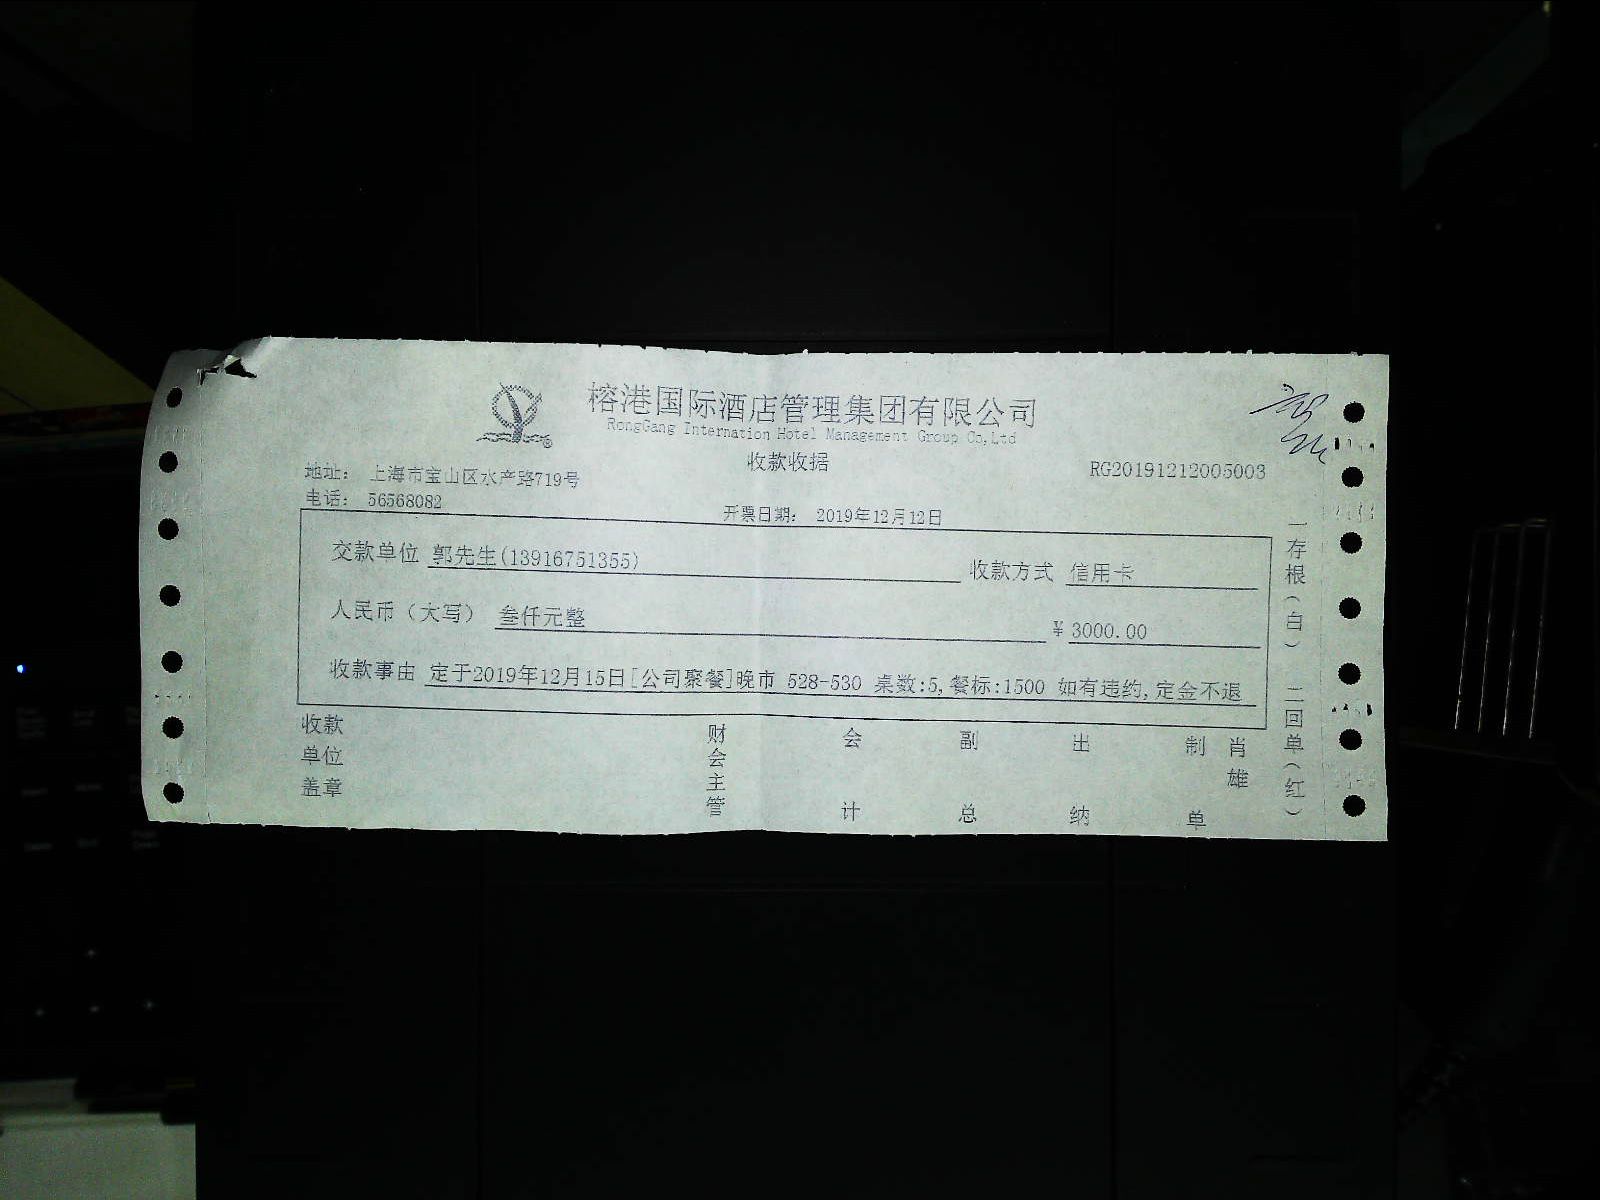 榕港国际酒店管理集团有限公司
RongGang Internation Hotel Management Group Co,Ltd
收款收据
RG20191212005003
地址： 上海市宝山区水产路719号
电话： 56568082
开票日期： 2019年12月12日
交款单位 郭先生(13916751355) 收款方式 信用卡
人民币（大写） 叁仟元整 ¥ 3000.00
收款事由 定于2019年12月15日[公司聚餐]晚市 528-530 桌数:5,餐标:1500 如有违约,定金不退
收款单位盖章 财会主管 会计 副总 出纳 制单 肖雄
一存根（白） 二回单（红）